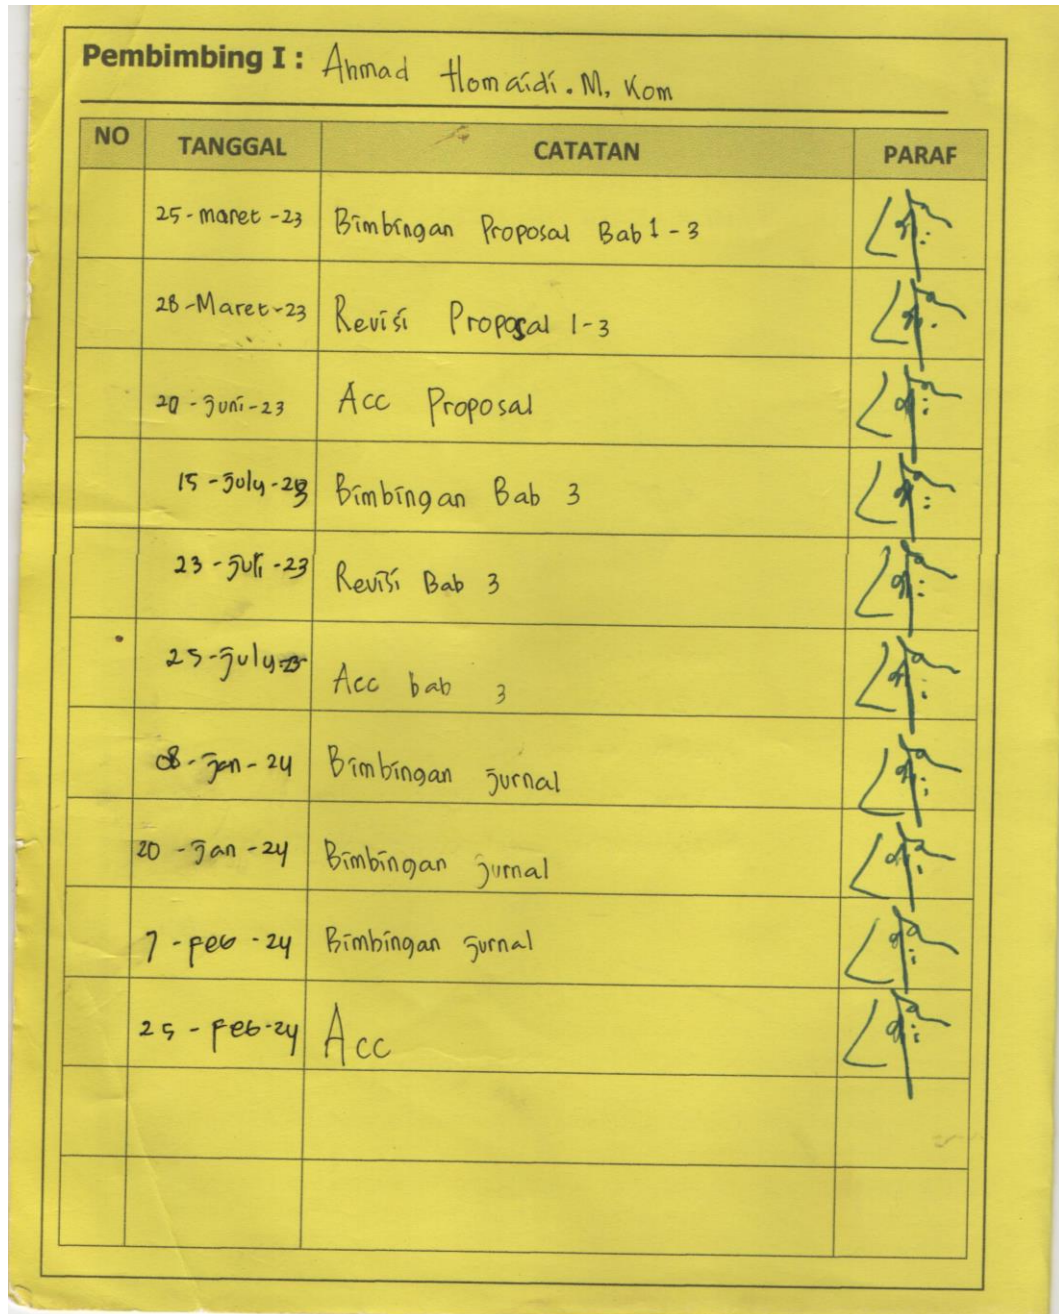 Pembimbing I : Ahmad Homaidi. M, Kom
NO TANGGAL CATATAN PARAF
25-maret-23 Bimbingan Proposal Bab 1-3
28-Maret-23 Revisi Proposal 1-3
20-Juni-23 Acc Proposal
15-July-23 Bimbingan Bab 3
23-Juli-23 Revisi Bab 3
25-July-23 Acc bab 3
08-Jan-24 Bimbingan Jurnal
20-Jan-24 Bimbingan Jurnal
7-Feb-24 Bimbingan Jurnal
25-Feb-24 Acc